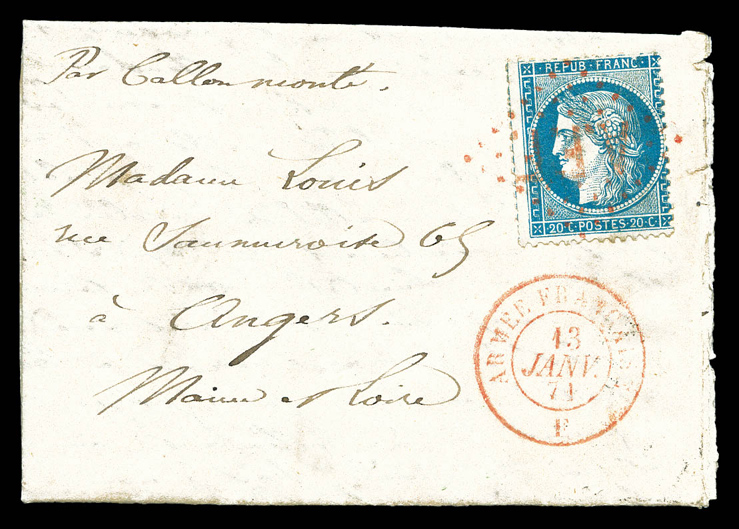 Par Ballon monté.
REPUB · FRANC ·
· 20 · C · POSTES · 20 · C ·
Madame Louis
rue Saumuroise 65
à Angers.
Maine et Loire
ARMÉE FRANÇAISE
13
JANV.
71